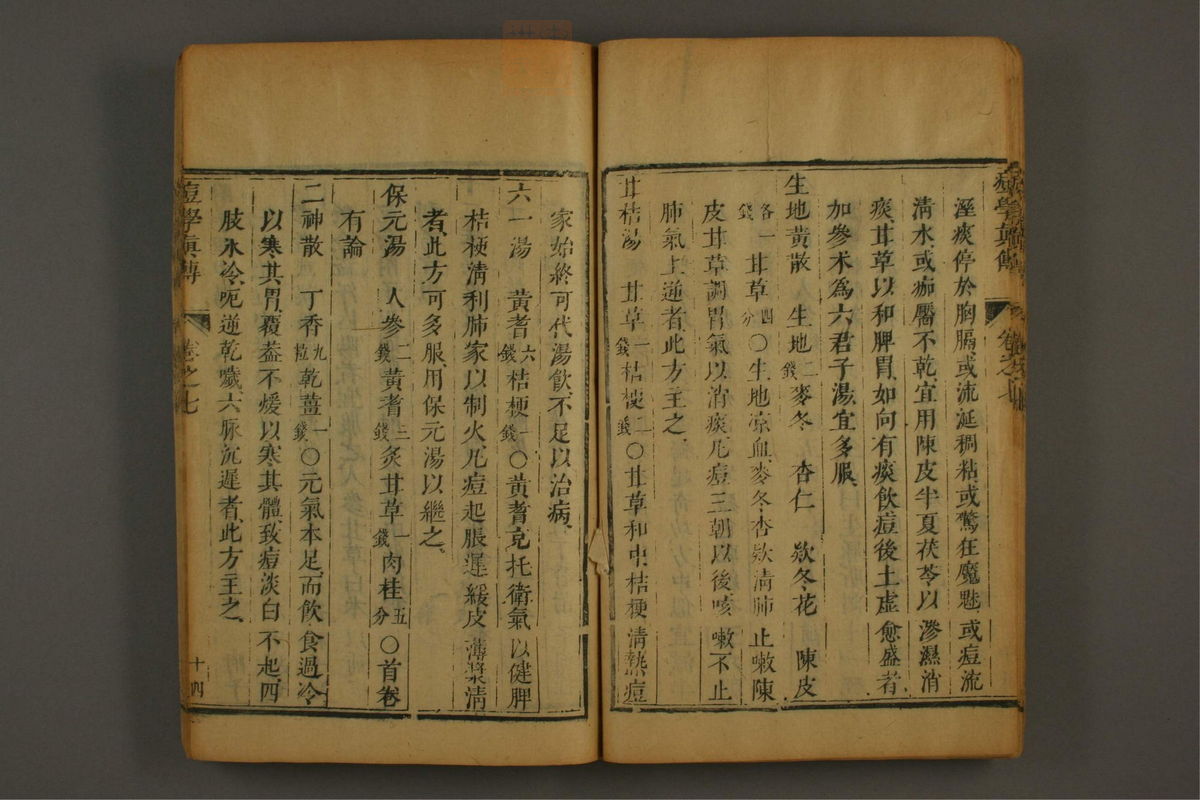 溼痰停於胸膈或流涎稠粘或驚狂魔魅或痘流
清水或痂靨不乾宜用陳皮半夏茯苓以滲濕消
痰甘草以和脾胃如向有痰飲痘後土虛愈盛者
加參朮為六君子湯宜多服
生地黃散 生地二錢麥冬 杏仁 欵冬花 陳皮
各一錢甘草四分○生地凉血麥冬杏欵清肺止嗽陳
皮甘草調胃氣以消痰凡痘三朝以後咳嗽不止
肺氣上逆者此方主之
甘桔湯 甘草一錢桔梗二錢○甘草和中桔梗清熱痘
痘學真傳 卷之七
家始終可代湯飲不足以治病
六一湯 黃耆六錢桔梗一錢○黃耆充托衛氣以健脾
桔梗清利肺家以制火凡痘起脹遲緩皮薄漿清
者此方可多服用保元湯以繼之
保元湯 人參二錢黃耆三錢炙甘草一錢肉桂五分○首卷
有論
二神散 丁香九粒乾薑一錢○元氣本足而飲食過冷
以寒其胃覆葢不煖以寒其體致痘淡白不起四
肢氷冷呃逆乾噦六脉沉遲者此方主之
痘學真傳 卷之七 十四